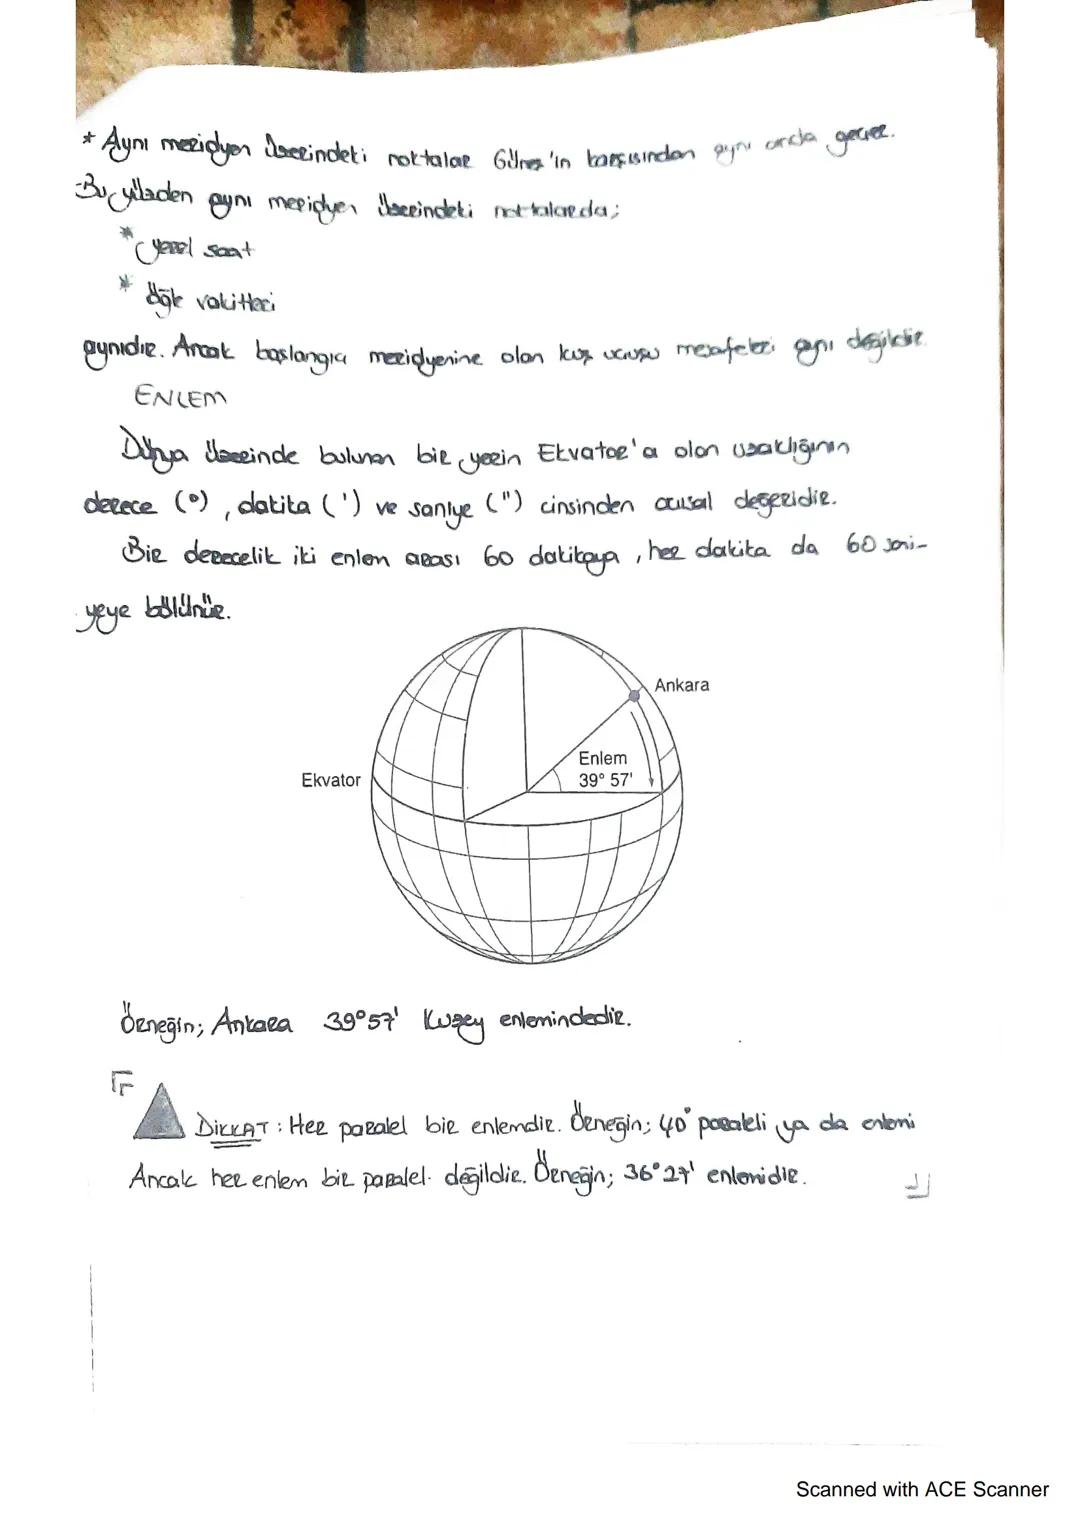 * Aynı meridyen üzerindeki noktalar Güneş'in karşısından aynı anda geçer.
-Bu yüzden aynı meridyen üzerindeki noktalarda;
* yerel saat
* öğle vakitleri
aynıdır. Ancak başlangıç meridyenine olan kuş uçuşu mesafeleri aynı değildir.
ENLEM
Dünya üzerinde bulunan bir yerin Ekvator'a olan uzaklığının
derece (°), dakika (') ve saniye (") cinsinden açısal değeridir.
Bir derecelik iki enlem arası 60 dakikaya, her dakika da 60 sani-
yeye bölünür.
Ankara
Enlem
39° 57'
Ekvator
Örneğin; Ankara 39°57' Kuzey enlemindedir.
DİKKAT : Her paralel bir enlemdir. Örneğin; 40° paraleli ya da enlemi
Ancak her enlem bir paralel değildir. Örneğin; 36°27' enlemidir.
Scanned with ACE Scanner